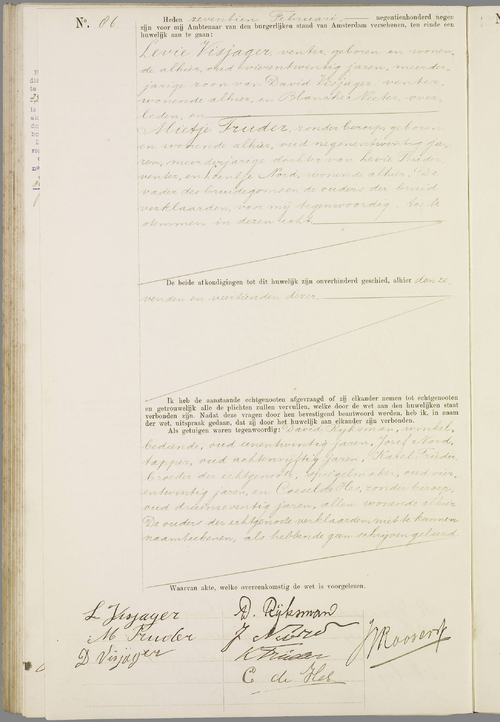 No. 86
Heden zeventien Februari, negentienhonderd negen
zijn voor mij Ambtenaar van den burgerlijken stand van Amsterdam verschenen, ten einde een
huwelijk aan te gaan:
Levie Visjager, venter, geboren en wonen-
de alhier, oud vierentwintig jaren, meerder-
jarige zoon van David Visjager, venter,
wonende alhier, en Blanche Neeter, over-
leden, en
Mietje Fruder, zonder beroep, geboren
en wonende alhier, oud negenentwintig ja-
ren, meerderjarige dochter van Levie Fruder,
venter, en Nord, wonende alhier. De
vader des bruidegoms en de ouders der bruid
verklaarden, voor mij tegenwoordig, toe te
stemmen in dezen echt.
De beide afkondigingen tot dit huwelijk zijn onverhinderd geschied, alhier den ze-
venden en veertienden dezer.
Ik heb de aanstaande echtgenooten afgevraagd of zij elkander nemen tot echtgenooten
en getrouwelijk alle de plichten zullen vervullen, welke door de wet aan den huwelijken staat
verbonden zijn. Nadat deze vragen door hen bevestigend beantwoord werden, heb ik, in naam
der wet, uitspraak gedaan, dat zij door het huwelijk aan elkander zijn verbonden.
Als getuigen waren tegenwoordig: David Rijksman, winkel-
bediende, oud eenentwintig jaren, Jozef Nord,
tapper, oud achtenvijftig jaren, Fruder,
broeder der echtgenoote, oud vier-
entwintig jaren, en de Hes, zonder beroep,
oud drieënzeventig jaren, allen wonende alhier.
De ouders der echtgenoote verklaarden niet te kunnen
naamteekenen, als hebbende geen schrijven geleerd.
Waarvan akte, welke overeenkomstig de wet is voorgelezen.
L Visjager D. Rijksman
M Fruder J Noord
D Visjager K Fruder
C de Hes